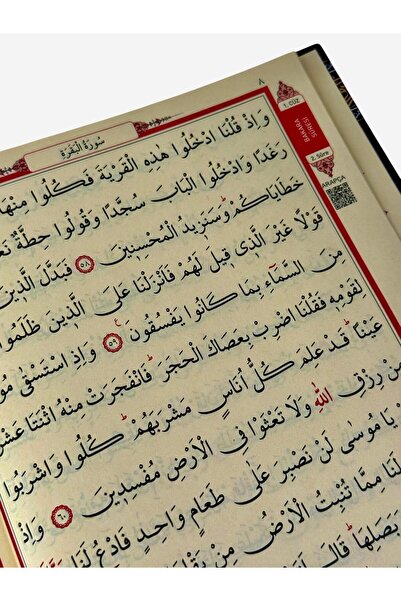 ٨
سُورَةُ الْبَقَرَةِ
1. CÜZ
BAKARA SURESİ
2. Sûre
ARAPÇA
وَاِذْ قُلْنَا ادْخُلُوا هٰذِهِ الْقَرْيَةَ فَكُلُوا مِنْهَا
رَغَدًا وَادْخُلُوا الْبَابَ سُجَّدًا وَقُولُوا حِطَّةٌ
خَطَايَاكُمْ وَسَنَزِيدُ الْمُحْسِنِينَ ٥٨ فَبَدَّلَ الَّذِينَ
قَوْلًا غَيْرَ الَّذِى قِيلَ لَهُمْ فَاَنْزَلْنَا عَلَى الَّذِينَ ظَلَمُوا
مِنَ السَّمَاءِ بِمَا كَانُوا يَفْسُقُونَ ٥٩ وَاِذِ اسْتَسْقٰى
لِقَوْمِهِ فَقُلْنَا اضْرِبْ بِعَصَاكَ الْحَجَرَ فَانْفَجَرَتْ مِنْهُ اثْنَتَا
عَيْنًا قَدْ عَلِمَ كُلُّ اُنَاسٍ مَشْرَبَهُمْ كُلُوا وَاشْرَبُوا
مِنْ رِزْقِ اللّٰهِ وَلَا تَعْثَوْا فِى الْاَرْضِ مُفْسِدِينَ ٦٠ وَاِذْ
يَا مُوسٰى لَنْ نَصْبِرَ عَلٰى طَعَامٍ وَاحِدٍ فَادْعُ لَنَا
لَنَا مِمَّا تُنْبِتُ الْاَرْضُ مِنْ
وَبَصَلِهَا قَالَ